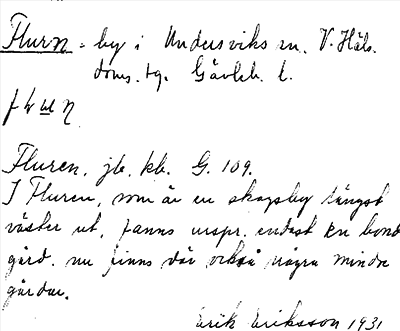 Flurn = by i Undersviks sn. V. Häls.
doms. tg. Gävleb. l.
Fluren, jb, kb. G. 109.
I Fluren, som är en skogsby längst
väster ut, fanns urspr. endast en bond
gård. nu finns där också några mindre
gårdar.
Erik Eriksson 1931